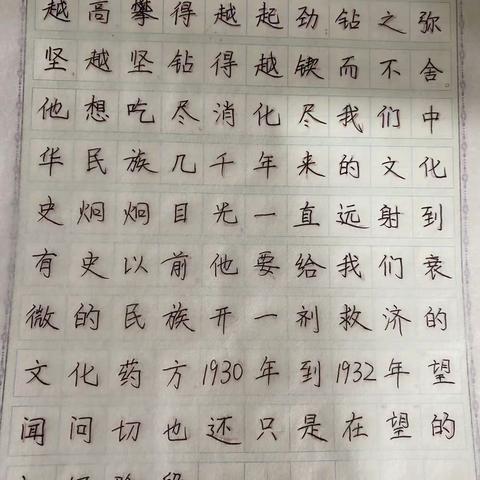 越高攀得越起劲钻之弥
坚越坚钻得越锲而不舍
他想吃尽消化尽我们中
华民族几千年来的文化
史炯炯目光一直远射到
有史以前他要给我们衰
微的民族开一剂救济的
文化药方1930年到1932年望
闻问切也还只是在望的